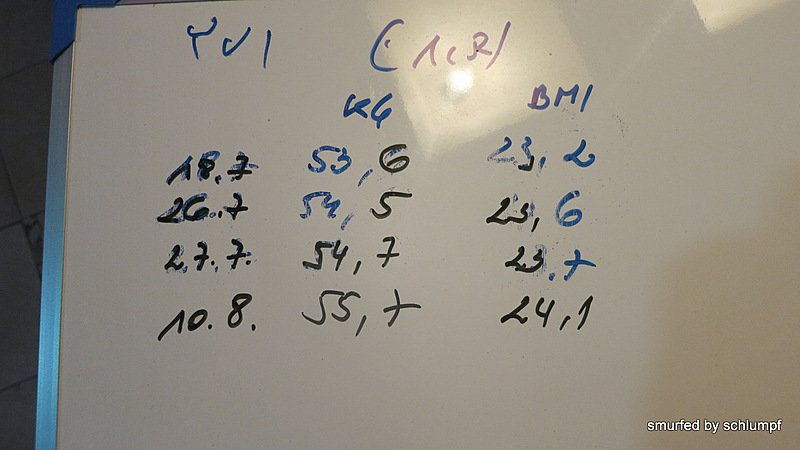 YVI (1,R)
KG BMI
18.7 53,6 23,2
26.7 54,5 23,6
27.7. 54,7 23,7
10.8. 55,7 24,1
smurfed by schlumpf